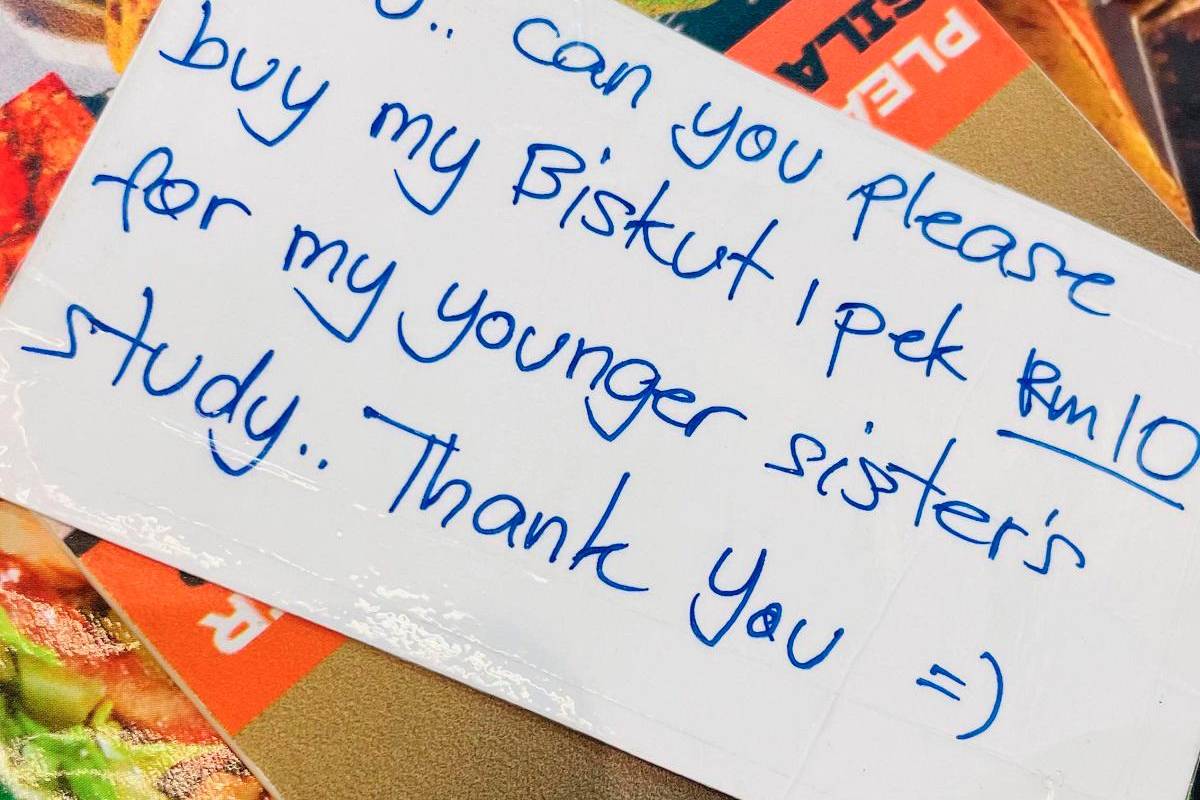 can you please
buy my Biskut 1 pek Rm10
for my younger sister's
study.. Thank you =)
PLEA
SILA
R